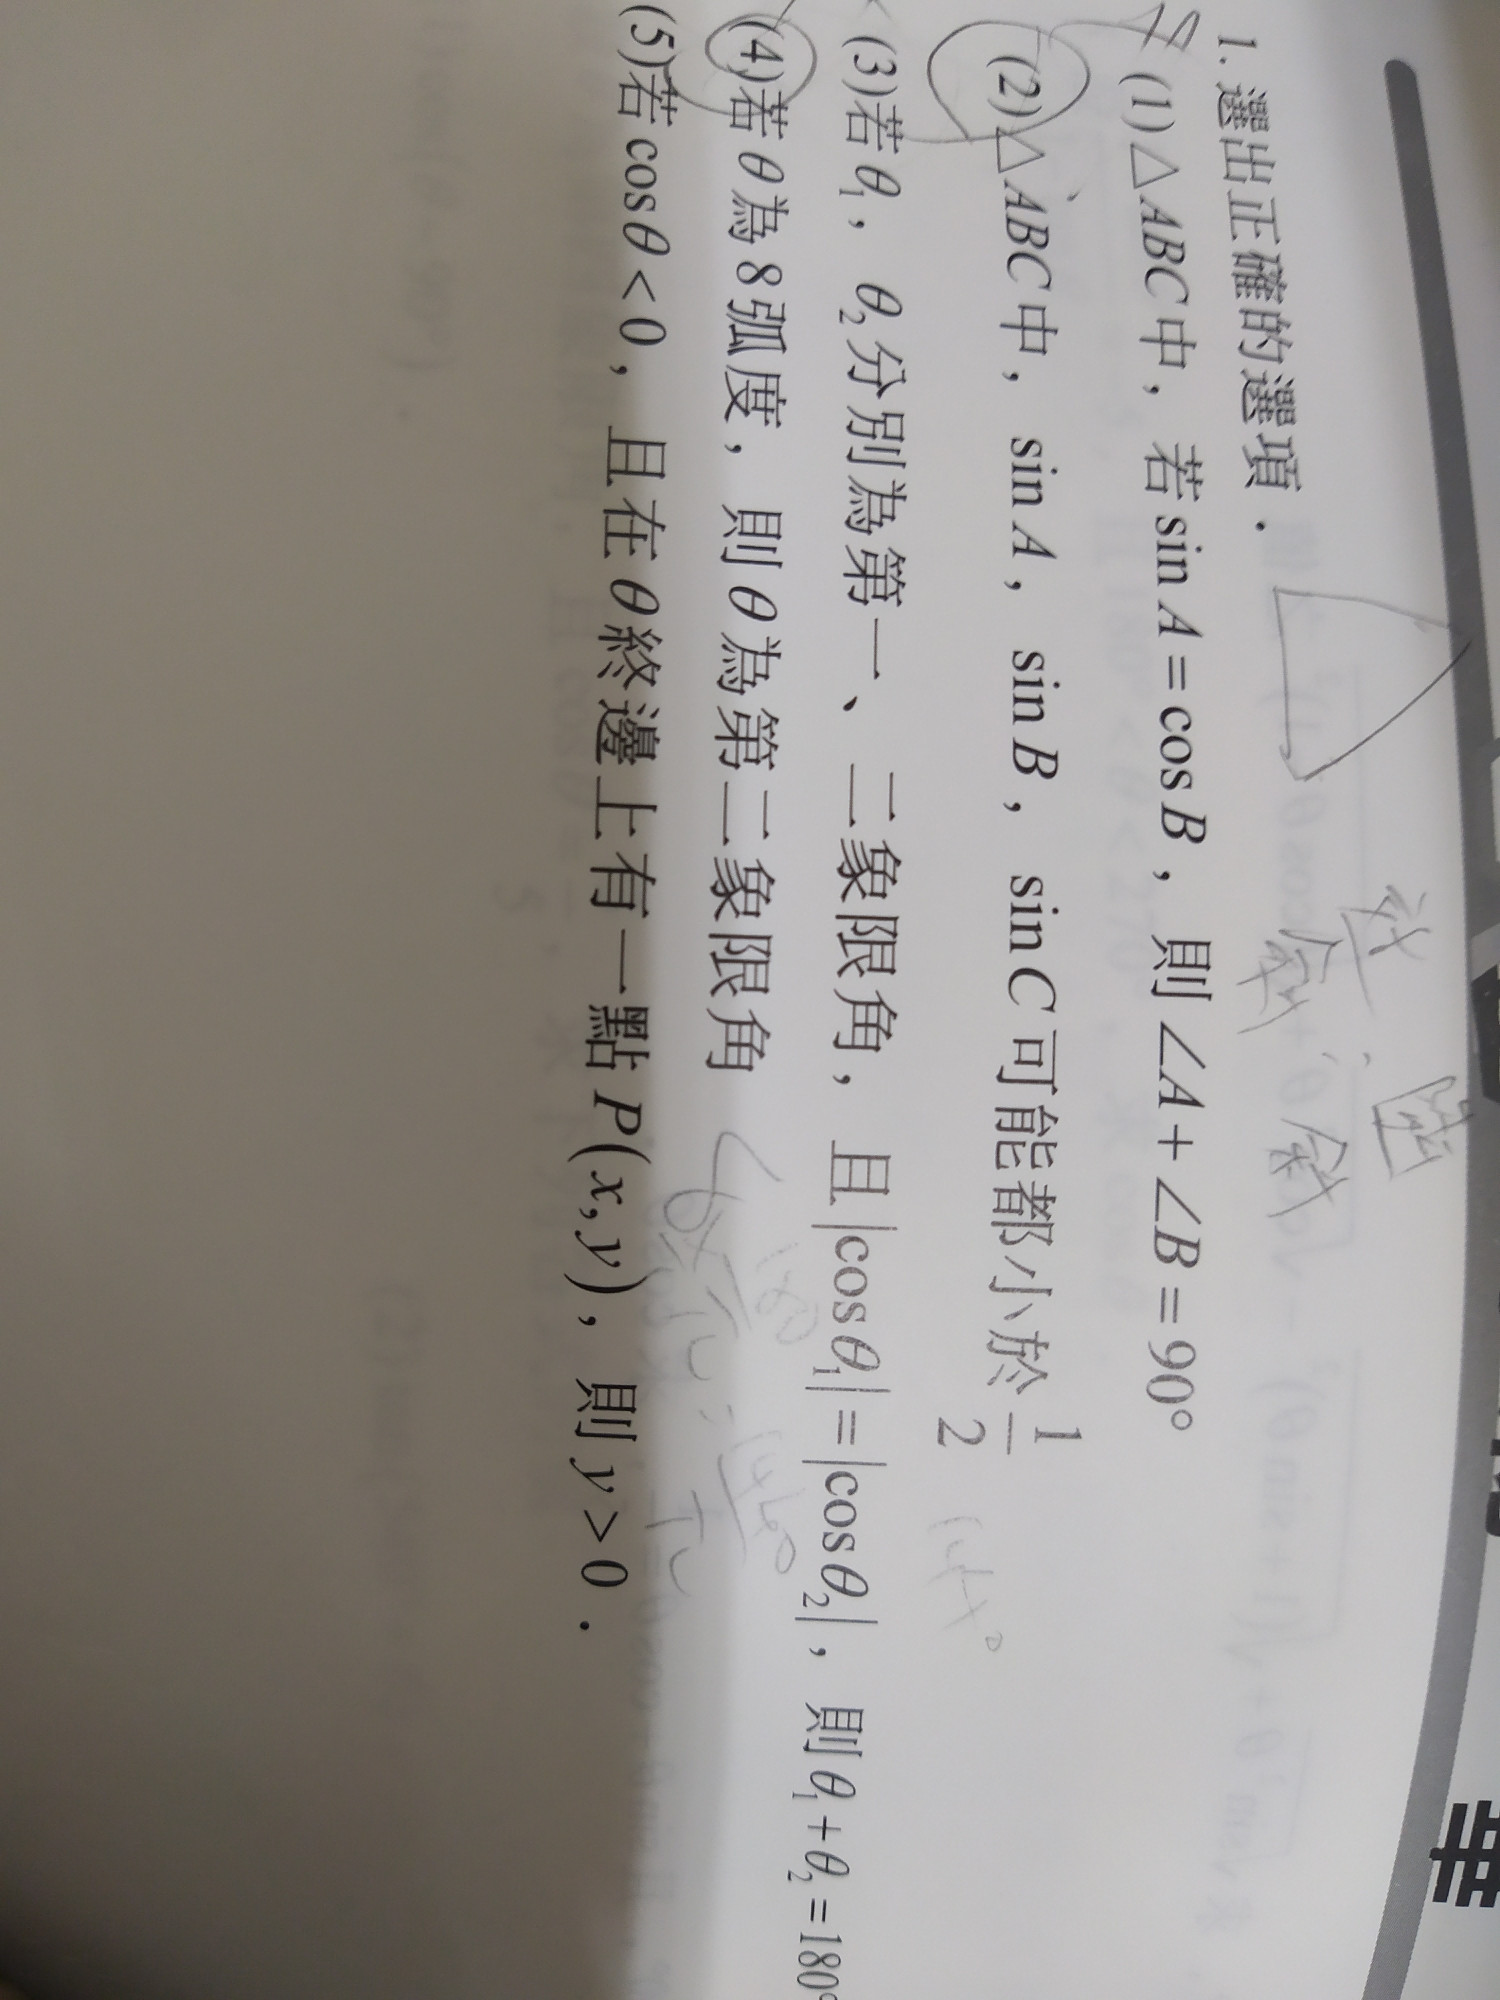 1. 選出正確的選項．
(1)△ABC中，若sin A=cos B，則∠A+∠B=90°
(2)△ABC中，sin A，sin B，sin C可能都小於1/2
(3)若θ₁，θ₂分別為第一、二象限角，且|cosθ₁|=|cosθ₂|，則θ₁+θ₂=180°
(4)若θ為8弧度，則θ為第二象限角
(5)若cosθ<0，且在θ終邊上有一點P(x,y)，則y>0．